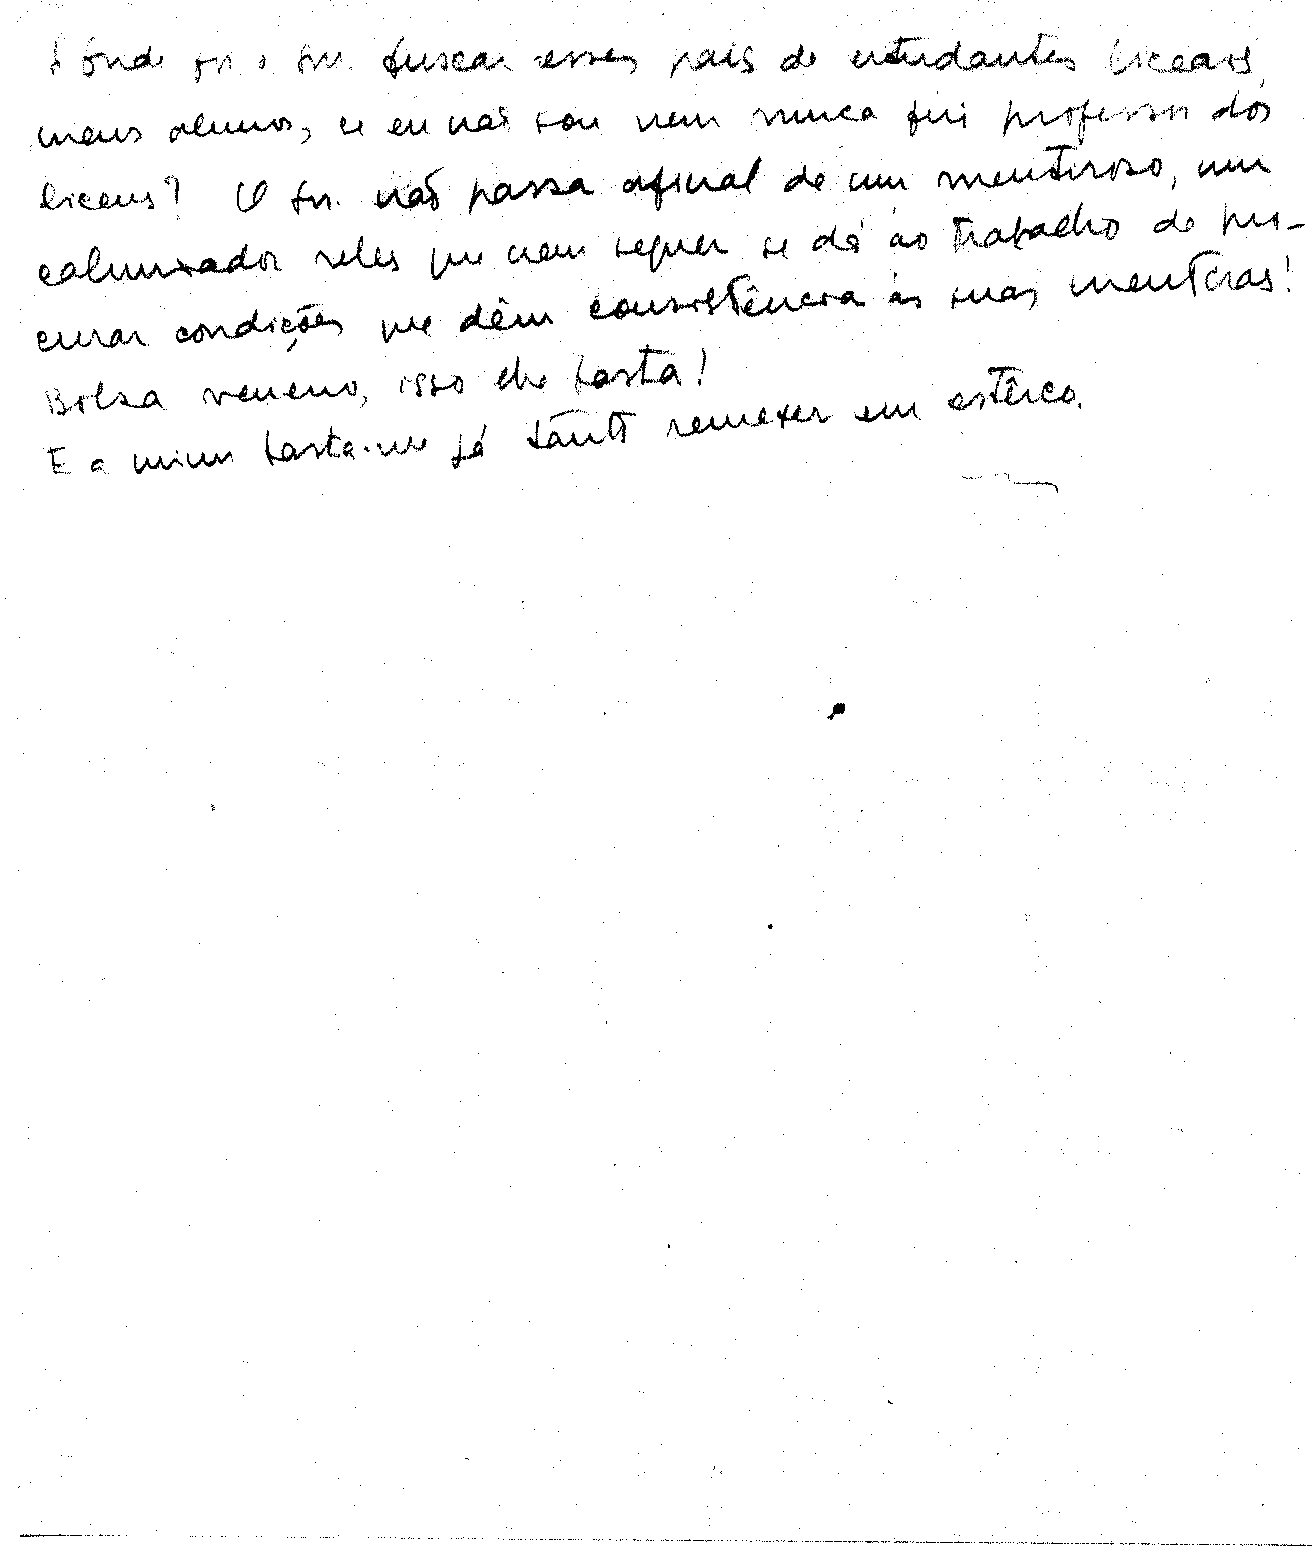 donde foi o sr. buscar esses pais de estudantes liceais,
meus alunos, se eu não sou nem nunca fui professor dos
liceus? O sr. não passa afinal de um mentiroso, um
caluniador reles que nem sequer se dá ao trabalho de pro-
curar condições que dêem consistência às suas mentiras!
Bolsa veneno, isso lhe basta!
E a mim basta-me já tanto remexer em estêrco.